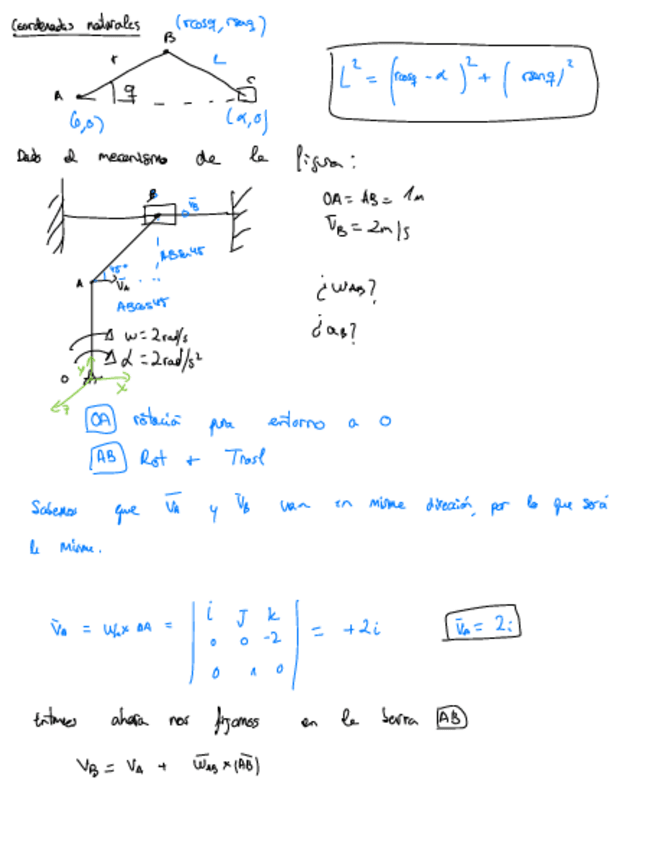 Coordenadas naturales
(rcosq, rsenq)
B
r
L
C
A
q
(0,0)
(α,0)
L² = (rcosq - α)² + (rsenq)²
Dado el mecanismo de la figura:
B
v̄B
OA = AB = 1m
V̄B = 2m/s
ABsen45
A
45°
v̄A
ABcos45
¿WAB?
¿aB?
w = 2rad/s
α = 2rad/s²
O
Y
X
Z
OA rotación pura entorno a O
AB Rot + Trasl
Sabemos que V̄A y V̄B van en misma dirección, por lo que será
la misma.
i J k
V̄A = × OA = 0 0 -2 = +2i V̄A = 2i
0 1 0
Entonces ahora nos fijamos en la barra AB
VB = VA + W̄AB × (AB)